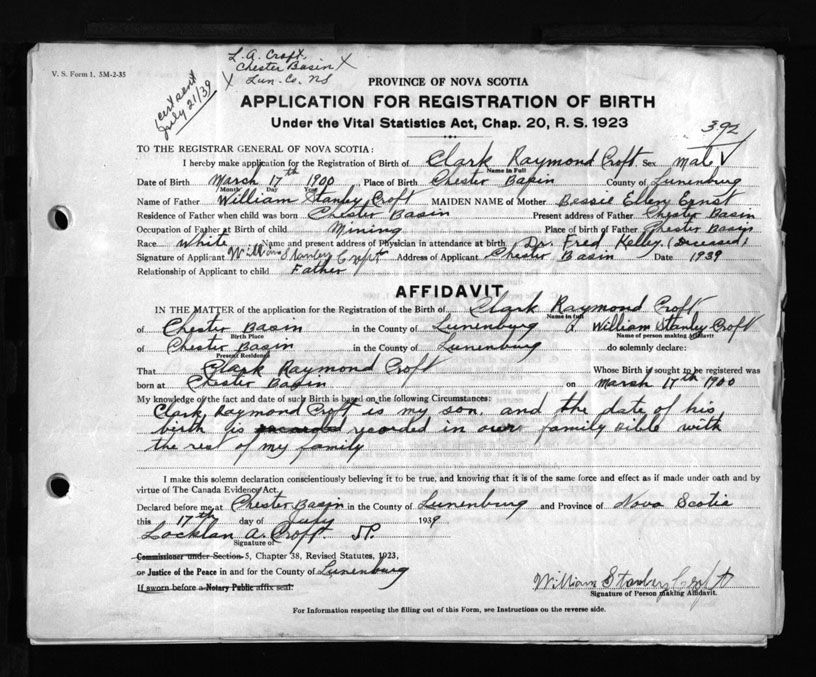 V. S. Form 1. 5M-2-35
L. A. Croft,
Chester Basin X
X Lun. Co. NS
cert sent
July 21/39
PROVINCE OF NOVA SCOTIA
APPLICATION FOR REGISTRATION OF BIRTH
Under the Vital Statistics Act, Chap. 20, R. S. 1923
392
TO THE REGISTRAR GENERAL OF NOVA SCOTIA:
I hereby make application for the Registration of Birth of Clark Raymond Croft Sex Male
Name in Full
Date of Birth March 17th 1900 Place of Birth Chester Basin County of Lunenburg
Month Day Year
Name of Father William Stanley Croft MAIDEN NAME of Mother Bessie Ellen Ernst
Residence of Father when child was born Chester Basin Present address of Father Chester Basin
Occupation of Father at Birth of child Mining Place of birth of Father Chester Basin
Race White Name and present address of Physician in attendance at birth Dr. Fred Kelley (Deceased)
Signature of Applicant William Stanley Croft Address of Applicant Chester Basin Date 1939
Relationship of Applicant to child Father
AFFIDAVIT
IN THE MATTER of the application for the Registration of the Birth of Clark Raymond Croft
Name in full
of Chester Basin in the County of Lunenburg I, William Stanley Croft
Birth Place Name of person making Affidavit
of Chester Basin in the County of Lunenburg do solemnly declare:
Present Residence
That Clark Raymond Croft Whose Birth is sought to be registered was
born at Chester Basin on March 17th 1900
My knowledge of the fact and date of such Birth is based on the following Circumstances:
Clark Raymond Croft is my son, and the date of his
birth is recorded in our family bible with
the rest of my family
I make this solemn declaration conscientiously believing it to be true, and knowing that it is of the same force and effect as if made under oath and by
virtue of The Canada Evidence Act.
Declared before me at Chester Basin in the County of Lunenburg and Province of Nova Scotia
this 17th day of July 1939
Locklan A. Croft. J.P.
Signature of
Commissioner under Section 5, Chapter 38, Revised Statutes, 1923,
or Justice of the Peace in and for the County of Lunenburg
If sworn before a Notary Public affix seal.
William Stanley Croft
Signature of Person making Affidavit.
For Information respecting the filling out of this Form, see Instructions on the reverse side.